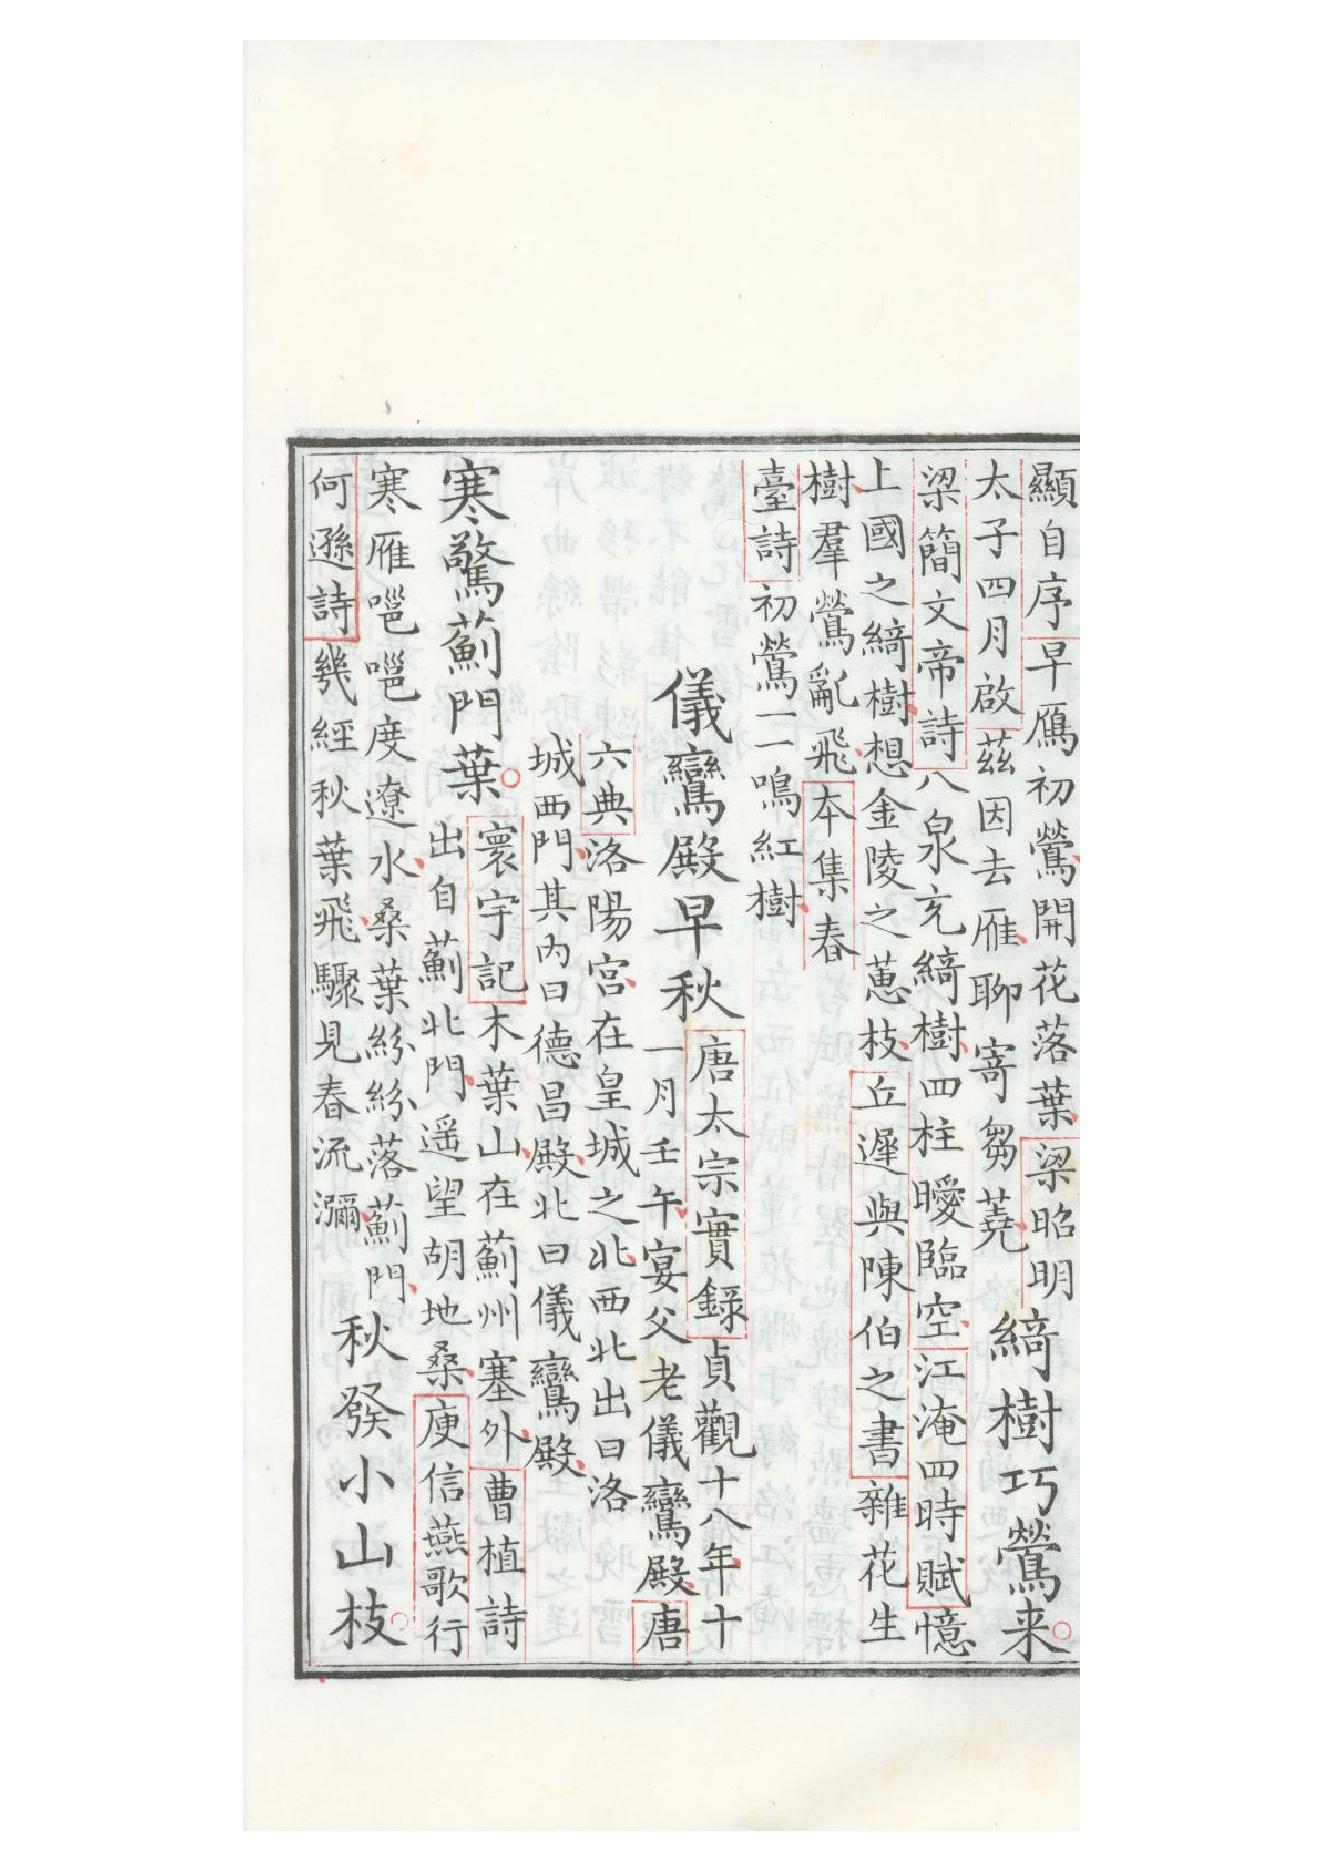 顯自序早鴈初鶯開花落葉梁昭明
太子四月啟茲因去雁聊寄芻蕘
綺樹巧鶯来
梁簡文帝詩八泉充綺樹四柱曖臨空江淹四時賦憶
上國之綺樹想金陵之蕙枝丘遲與陳伯之書雜花生
樹羣鶯亂飛本集春
臺詩初鶯一一鳴紅樹
儀鸞殿早秋
唐太宗實錄貞觀十八年十
一月壬午宴父老儀鸞殿唐
六典洛陽宮在皇城之北西北出曰洛
城西門其內曰德昌殿北曰儀鸞殿
寒驚薊門葉
寰宇記木葉山在薊州塞外曹植詩
出自薊北門遥望胡地桑庾信燕歌行
寒雁嗈嗈度遼水桑葉紛紛落薊門
何遜詩幾經秋葉飛驟見春流瀰
秋發小山枝